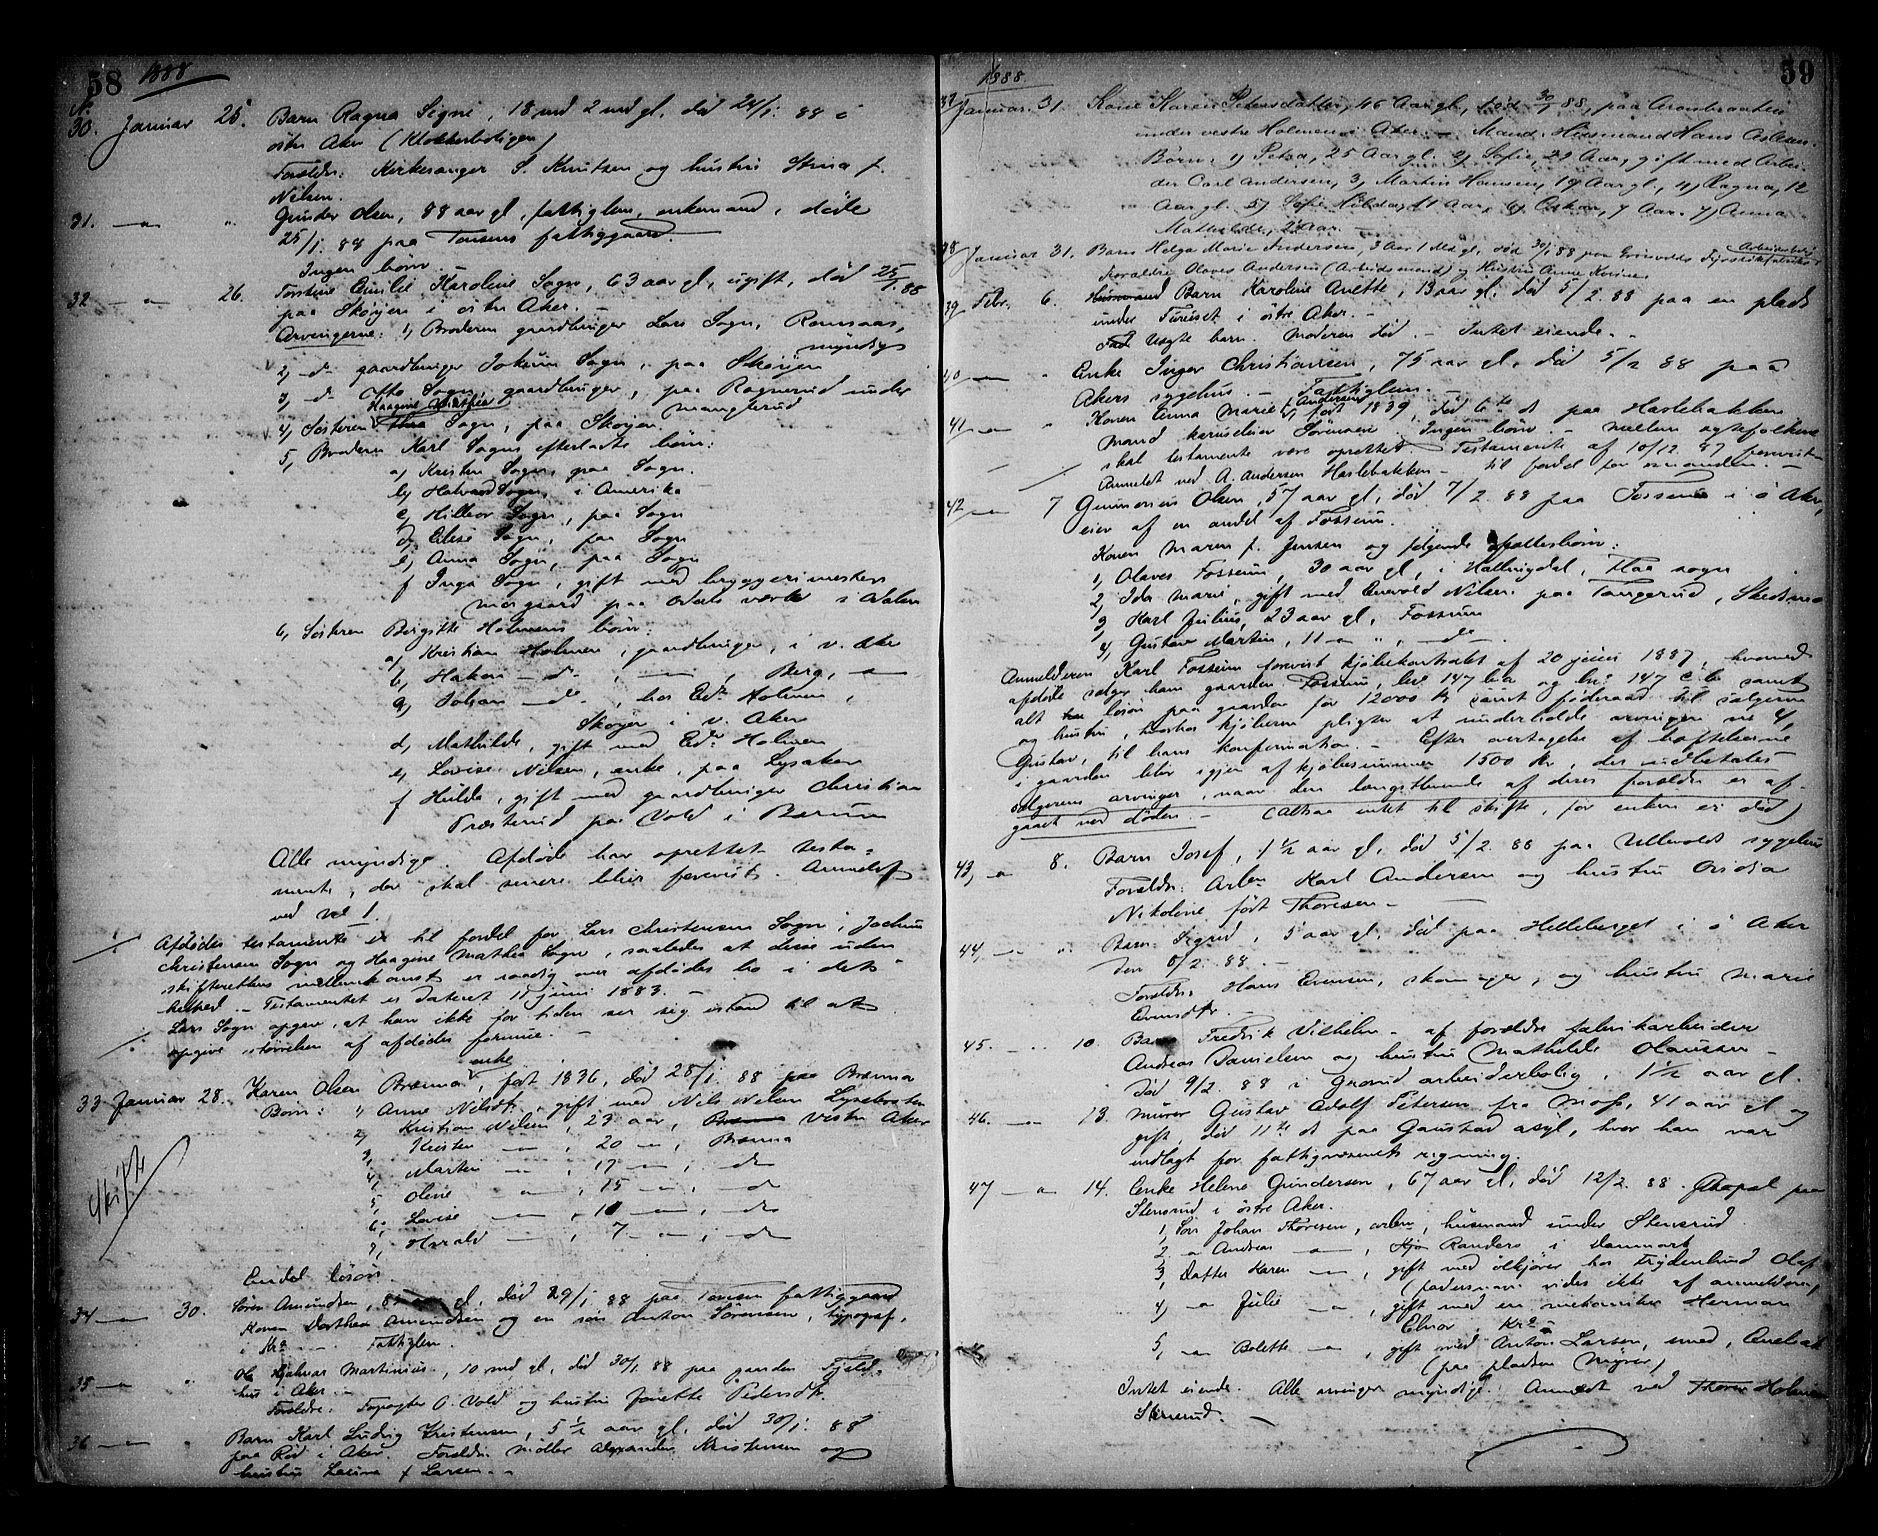 58 1888
N.
30. Januar 25. Barn Ragna Signe, 18 md 2 md gl. død 24/1. 88 i
østre Aker (Klokkerboligen)
Forældre: Kirkesanger S. Knutsen og hustru Stina f.
Nilsen.
31. — " — " Gunder Olsen, 88 aar gl, fattiglem, enkemand, døde
25/1. 88 paa Tonsens fattiggaard.
Ingen børn. —
32 — " — 26. Emilie Karoline Sogn, 63 aar gl, ugift, død 25/1. 88
paa Skøyen i østre Aker. —
Arvingerne: 1, Broderen gaardbruger Lars Sogn, Ramsaas,
myndig
2, — d — gaardbruger Jokum Sogn, paa Skøyen
3, — d Otto Sogn, gaardbruger, paa Ragnerud under
Manglerud
Haagine Mathea
4, Søsteren Sogn, paa Skøyen
5, Broderen Karl Sogns efterladte børn:
a, Kristen Sogn, paa Sogn.
b, Halvard Sogn, i Amerika
c, Hilleør Sogn, paa Sogn
d, Elise Sogn, paa Sogn
e, Anna Sogn, paa Sogn
f Inga Sogn, gift med bryggerimester
paa Odals værk i Odalen
6, Søsteren Birgitte Holmens børn:
a, Kristian Holmen, gaardbruger, i v. Aker
b, Hakon — d — , — " — , Berg, — "
c, Johan — d — , hos Edv. Holmen,
Skøyen i v. Aker
d, Mathilde, gift med Edv. Holmen
e, Lovise Nilsen, enke, paa Lysaker
f Hulda, gift med gaardbruger Christian
Præsterud paa Vold i Bærum
Alle myndige. Afdøde har oprettet testa-
mente, der skal senere blive forevist. Anmeldt
ved No 1.
Afdødes testamente er til fordel for Lars Christensen Sogn, Jochum
Christensen Sogn og Haagine Mathea Sogn, saaledes at disse uden
skifterettens mellemkomst er raadig over afdødes bo i dets
helhed. — Testamentet er dateret 11 juni 1883. —
Lars Sogn opgav, at han ikke for tiden ser sig istand til at
opgive størrelsen af afdødes formue. —
33 Januar 28. Karen Olsen Brænna, enke, født 1836, død 28/1. 88 paa Brænna
Børn: 1, Anne Nilsdtr., gift med Nils Nilsen
2, Kristian Nilsen, 23 aar, Vestre Aker
3, Kristen — " — , 20 — " — , Brænna
4, Martin — " — , 17 — " — , do
5, Oline — " — , 15 — " — , do
6, Lovise — " — , 10 — " — , do
7, Harald — " — , 7 — " — , do
Skifte
Endel løsøre.
34 — " — 30. Søren Amundsen, gl, død 29/1 88 paa Tonsen fattiggaard
Konen Dorthea Amundsen og en søn Anton Sørensen, typograf,
i Kra. — Fattiglem.
35 — " — " Hjalmar Martinius, 10 md gl, død 30/1. 88 paa gaarden Fjeld-
hus i Aker. —
Forældre: O. Vold og hustru Janette Pedersdtr.
36 — " — " Barn Karl Ludvig Kristensen, 5 1/2 aar gl, død 30/1. 88
paa Rød i Aker. Forældre: møller Alexander Kristensen og
hustru Lovise f Larsen. —
1888 59
37 Januar 31. Kone Karen Petersdatter, 46 Aar gl, død 30/1 88, paa Aronbraaten
under vestre Holmen i Aker. — Mand: Husmand Hans Aslesen.
Børn: 1, Petra, 25 Aar gl. 2, Sofie, 21 Aar, gift med Arbei-
der Carl Andersen, 3, Martin Hansen, 19 Aar gl, 4, Ragna, 12
Aar gl. 5, Sofie 11 Aar, 6, Oskar, 7 Aar. 7, Anna
Mathilde, 2 Aar. —
38 Januar 31. Barn Helga Marie Andersen, 3 Aar 1 Md gl, død 30/1 88 paa Grønvolds Fyrstikfabriks
Forældre Olaves Andersen (Arbeidsmand) og Hustru Anne Karine.
39 Febr. 6. Husmand Barn Karoline Anette, 13 aar gl, død 5/2 88 paa en plads
under Furuset i østre Aker. —
Uægte barn. Moderen død. — Intet eiende. —
40 — " — " Enke Inger Christiansen, 75 aar gl, død 5/2 88 paa
Akers sygehus. — Fattiglem. —
41 — " — " Konen Anna Marie f. Andersen, født 1839, død 6te d paa Haslebakken.
Mand Sørensen. Ingen børn. — Mellem ægtefolkene
skal testamente være oprettet. — Testamente af 10/12 87 forevist
Anmeldt ved A. Andersen Haslebakken — til fordel for manden. —
42 — " — 7 Gunerius Olsen, 57 aar gl, død 7/2. 88 paa Fossum i ø Aker,
eier af en andel af Fossum.
Konen Maren f. Jensen og følgende børn:
1, Olaves Fossum, 30 aar gl, i Hallingdal, Flaa sogn
2, Ida Marie, gift med Enevold Nilsen paa Tangerud, Skedsmo
3, Karl Julius, 23 aar gl, Fossum
4, Gustav Martin, 11 — " — , — do —
Anmelderen Karl Fossum forevist kjøbekontrakt af 20 juni 1887, hvorved
afdøde sælger ham gaarden Fossum, br 147 b a og br no 147 c b samt
alt løsøre paa gaarden for 12000 kr samt føderaad til sælgeren
og hustru, hvorhos kjøberen pligter at underholde arvingen no 4,
Gustav, til hans konfirmation. — Efter overtagelse af hæftelserne
i gaarden blev igjen af kjøbesummen 1500 kr, der udbetales
sælgerens arvinger, naar den længstlevende af deres forældre er af-
gaaet ved døden. — (Altsaa intet til skifte, før enken er død)
43, — " 8. Barn Josef, 1 1/2 aar gl, død 5/2. 88 paa Ullevolds sygehus
Forældre: Arb. Karl Andersen og hustru Ovidia
Nikoline født Thoresen. —
44, — " — " Barn Sigrid, 5 aar gl, død paa Helleberget i ø Aker
den 6/2. 88. —
Forældre: Hans Evensen, skomager, og hustru Marie
Evensdtr. —
45. — " — 10. Barn Fredrik Vilhelm — af forældre fabrikarbeider
Andreas Danielsen og hustru Mathilde Olaussen —
død 9/2. 88 i Grorud arbeiderbolig, 1 1/2 aar gl.
46. — " — 13. Murer Gustav Adolf Petersen fra Moss, 41 aar gl og
gift, død 11te d paa Gaustad asyl, hvor han var
indlagt for fattigvæsenets regning.
47 — " — 14. Enke Helene Gundersen, 67 aar gl, død 12/2. 88. paa
Stensrud i østre Aker.
1, Søn Johan Thoresen, arb., husmand under Stensrud
2, — " Andreas — " — , Randers i Danmark
3, Datter Karen — " — , gift med ølkjører hos Frydenlund Olaf
(fadersnavn vides ikke af anmelderen)
4, — " Julie — " — , gift med en mekaniker Herman
, Kra
5, — " Bolette — " — , gift med Anton Larsen, smed,
(paa pladsen Myrer)
Intet eiende. Alle arvinger myndige. Anmeldt ved Holmen
Stensrud. —